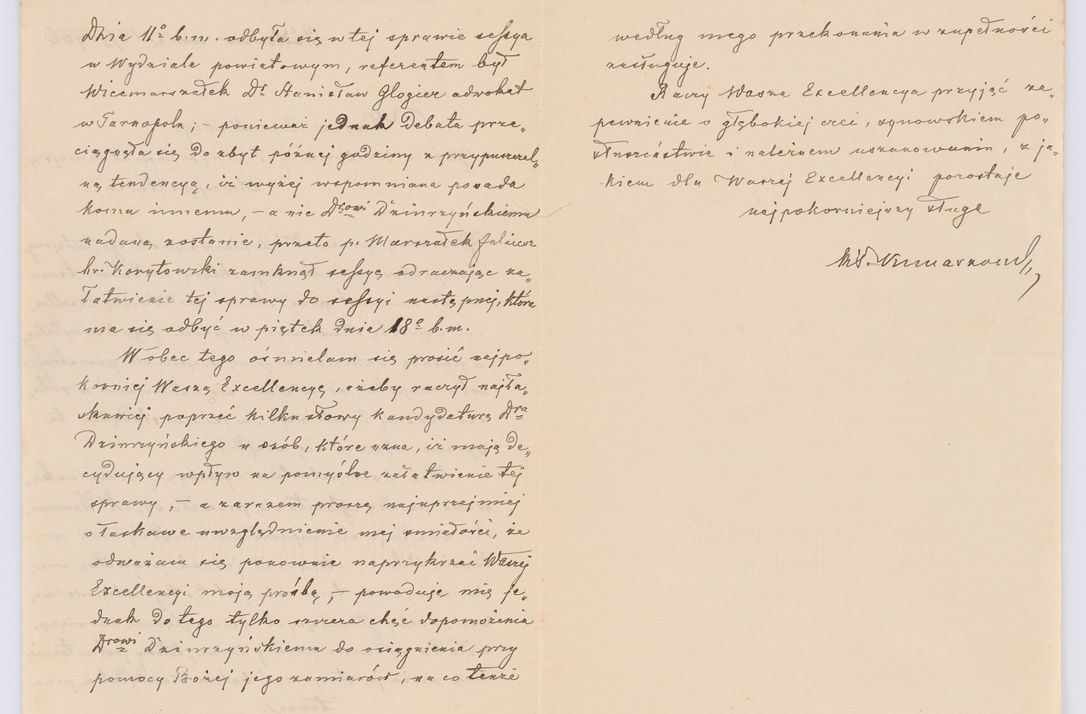 Dnia 11º b.m. odbyła się w tej sprawie sessya
w Wydziale powiatowym, referentem był
Wicemarszałek Dr Stanisław Glogier adwokat
w Tarnopolu; – ponieważ jednak Debata prze„
ciągnęła się do zbyt późnej godziny z przypuszczal„
ną tendencyą, iż wyżej wspomniana posada
komu innemu, – a nie Drowi Dzimrzyńskiemu
nadaną zostanie, przeto p. Marszałek Juliusz
hr. Korytowski zamknął sessyę odraczając za„
łatwienie tej sprawy do sessyi następnej, która
ma się odbyć w piątek dnia 18º b.m.
Wobec tego ośmielam się prosić najpo„
korniej Waszą Excellencyę, ażeby raczył najła„
skawiej poprzeć kilku słowy kandydaturę Dra
Dzimrzyńskiego u osób, które uzna, iż mają de„
cydujący wpływ na pomyślne załatwienie tej
sprawy, – a zarazem proszę najuprzejmiej
o łaskawe uwzględnienie mej śmiałości, że
odważam się ponownie naprzykrzać Waszej
Excellencyi moją prośbą, – powoduje mię je„
dnak do tego tylko szczera chęć dopomożenia
Drowi Dzimrzyńskiemu do osiągnienia przy
pomocy Bożej jego zamiarów, na co tenże
według mego przekonania w zupełności
zasługuje.
Raczy Wasza Excellencya przyjąć za„
pewnienie o głębokiej czci, synowskiem po„
słuszeństwie i należnem uszanowaniu, z ja„
kiem dla Waszej Excellencyi pozostaje
najpokorniejszy sługa